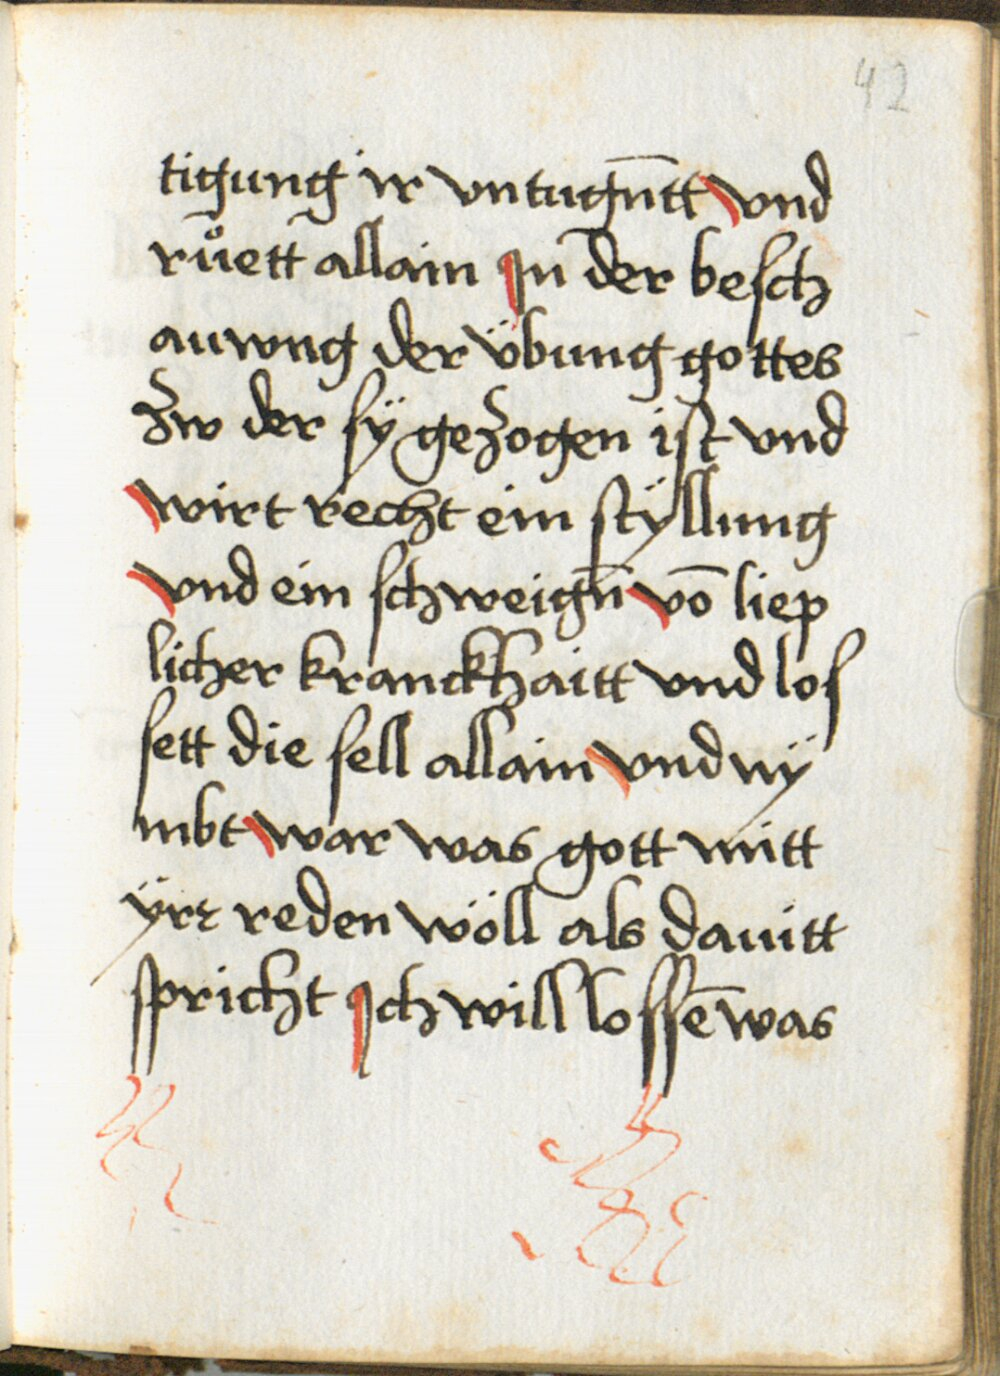 42
tigung ir vntugn̄tt vnd
růett allain Jn der besch
auwng der übung gottes
zw der sÿ gezogen ist vnd
wirt recht ein stÿllung
vnd ein schweign̄ vō liep
licher kranckhaitt vnd los
sett die sell allain vnd nÿ
mbt war was gott mitt
ÿrr reden wöll als dauitt
spricht Jch will lossē was